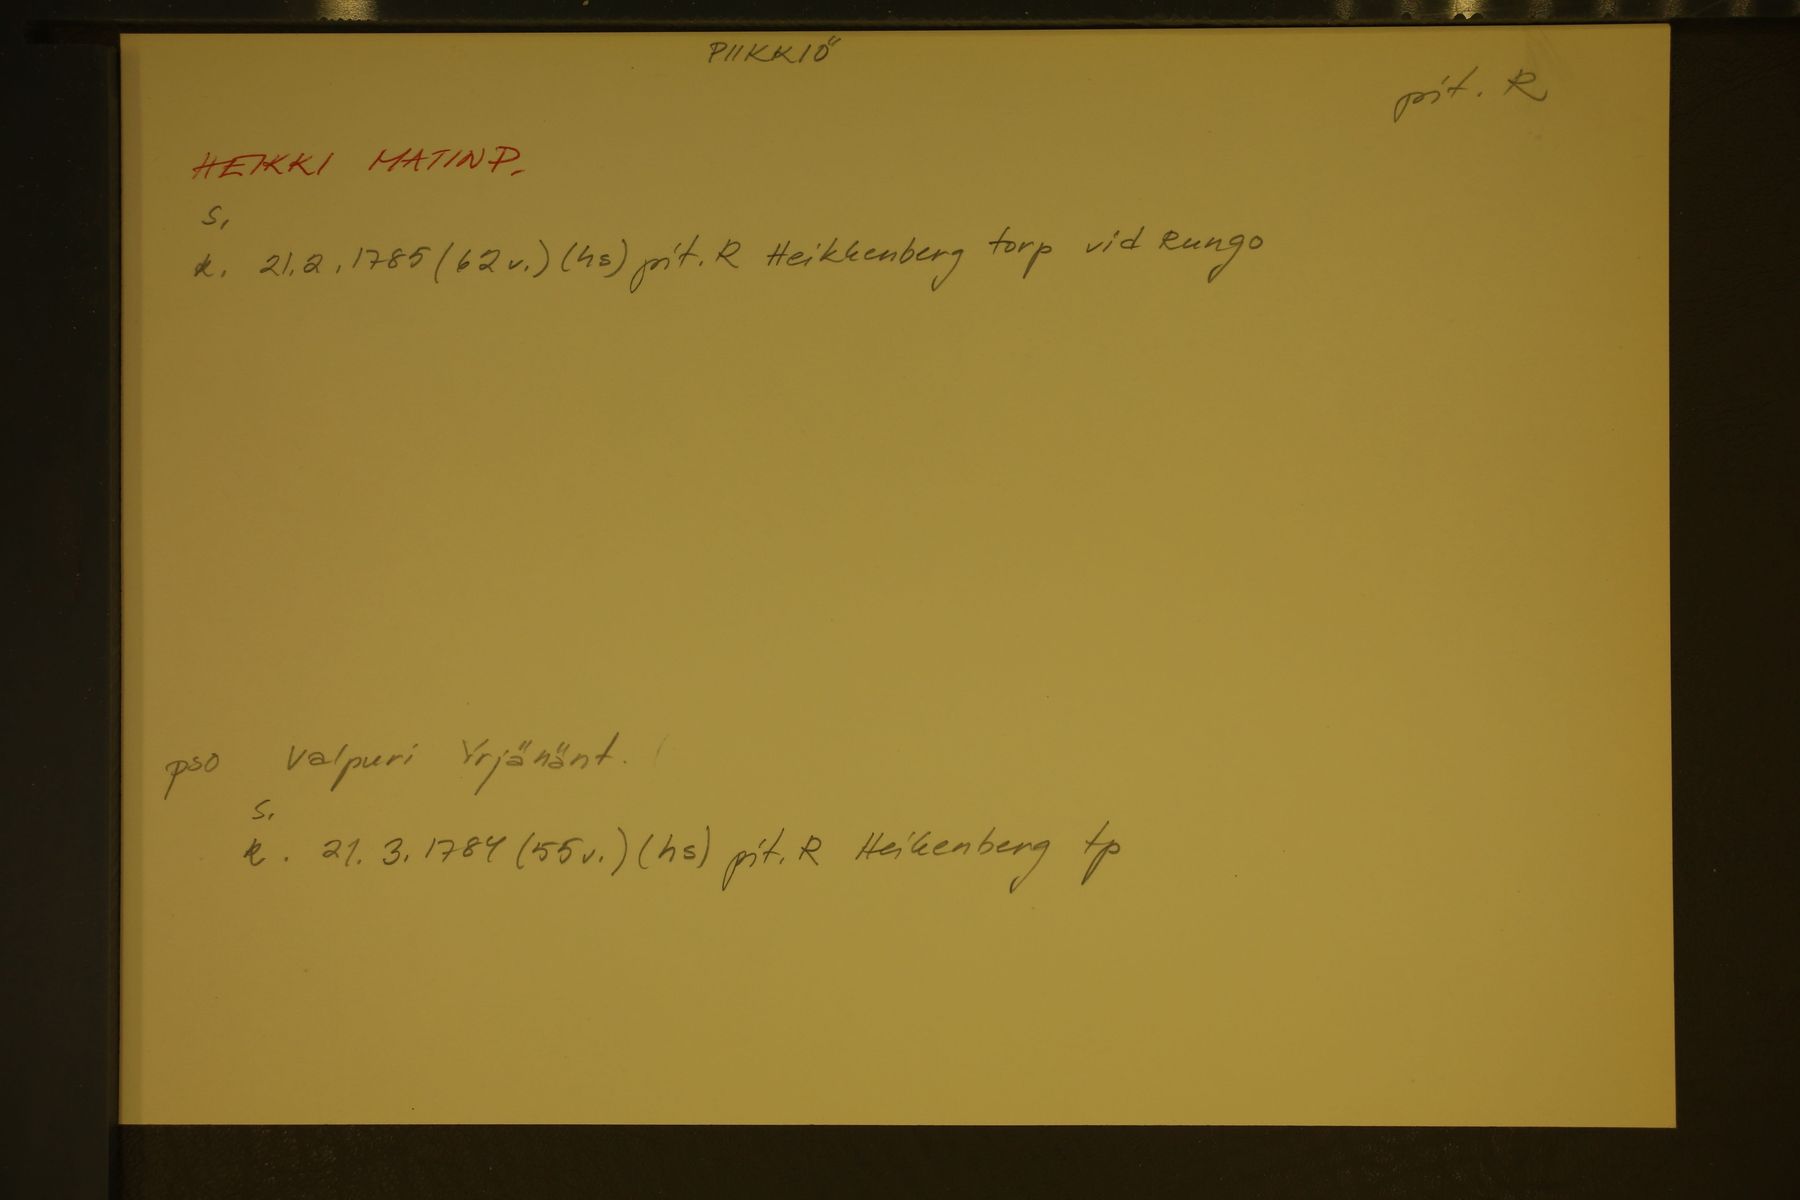 PIIKKIÖ
pit. R
HEIKKI MATINP.
s.
k. 21.2.1785 (62 v.) (hs) pit. R Heikkenberg torp vid Rungo
pso Valpuri Yrjänänt.
s.
k. 21.3.1784 (55 v.) (hs) pit. R Heikenberg tp